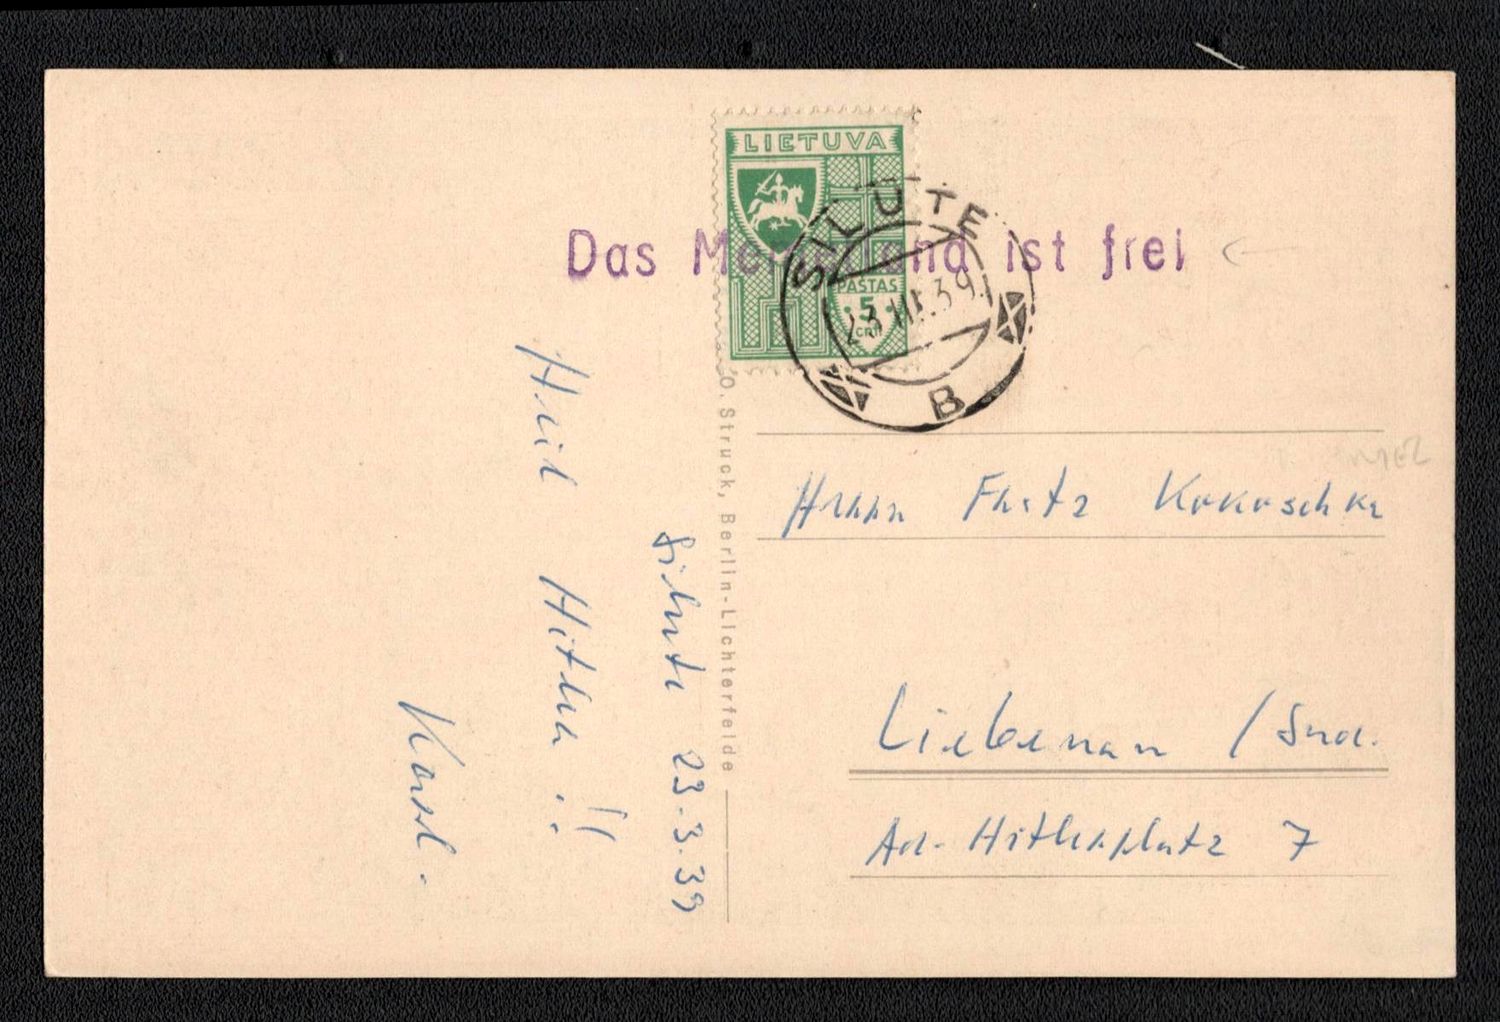 LIETUVA
PAŠTAS
5
CNT
ŠILUTĖ
23.III.39
B
Das Memelland ist frei
O. Struck, Berlin-Lichterfelde
Herrn Fritz Kokoschka
Liebenau / Sud.
Ad.-Hitlerplatz 7
Šilute 23.3.39
Heil Hitler!!
Karl.